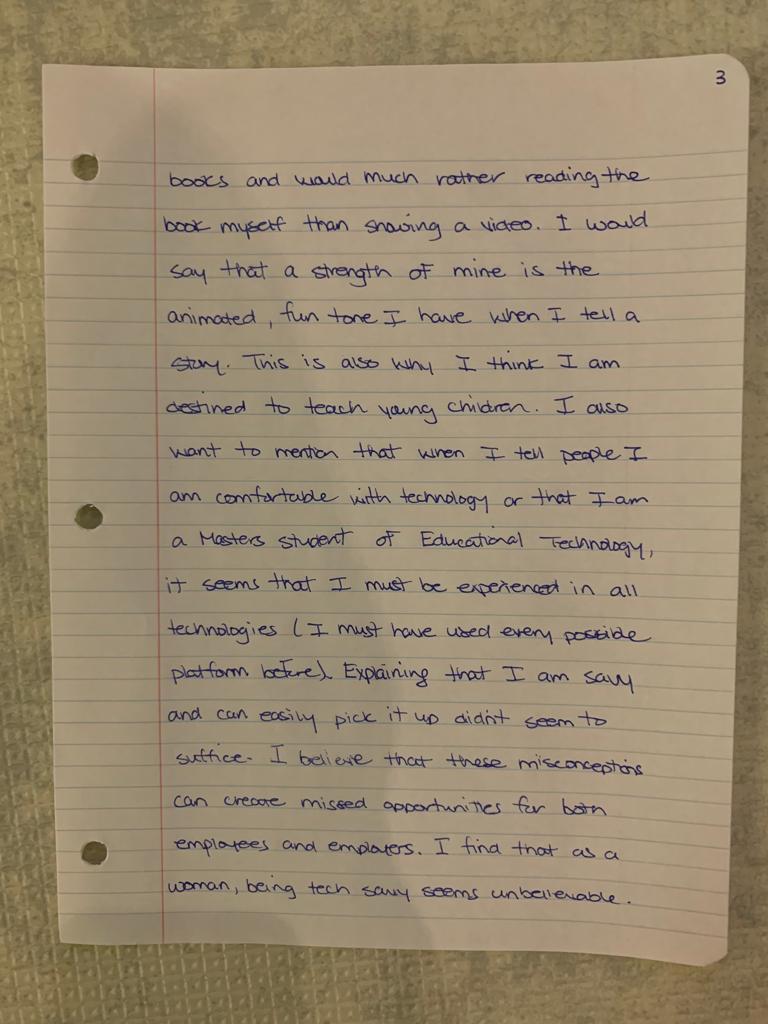 3
books and would much rather reading the
book myself than showing a video. I would
say that a strength of mine is the
animated, fun tone I have when I tell a
story. This is also why I think I am
destined to teach young children. I also
want to mention that when I tell people I
am comfortable with technology or that I am
a Masters student of Educational Technology,
it seems that I must be experienced in all
technologies (I must have used every possible
platform before). Explaining that I am savy
and can easily pick it up didn't seem to
suffice. I believe that these misconceptions
can create missed opportunities for both
employees and employers. I find that as a
woman, being tech savy seems unbelievable.